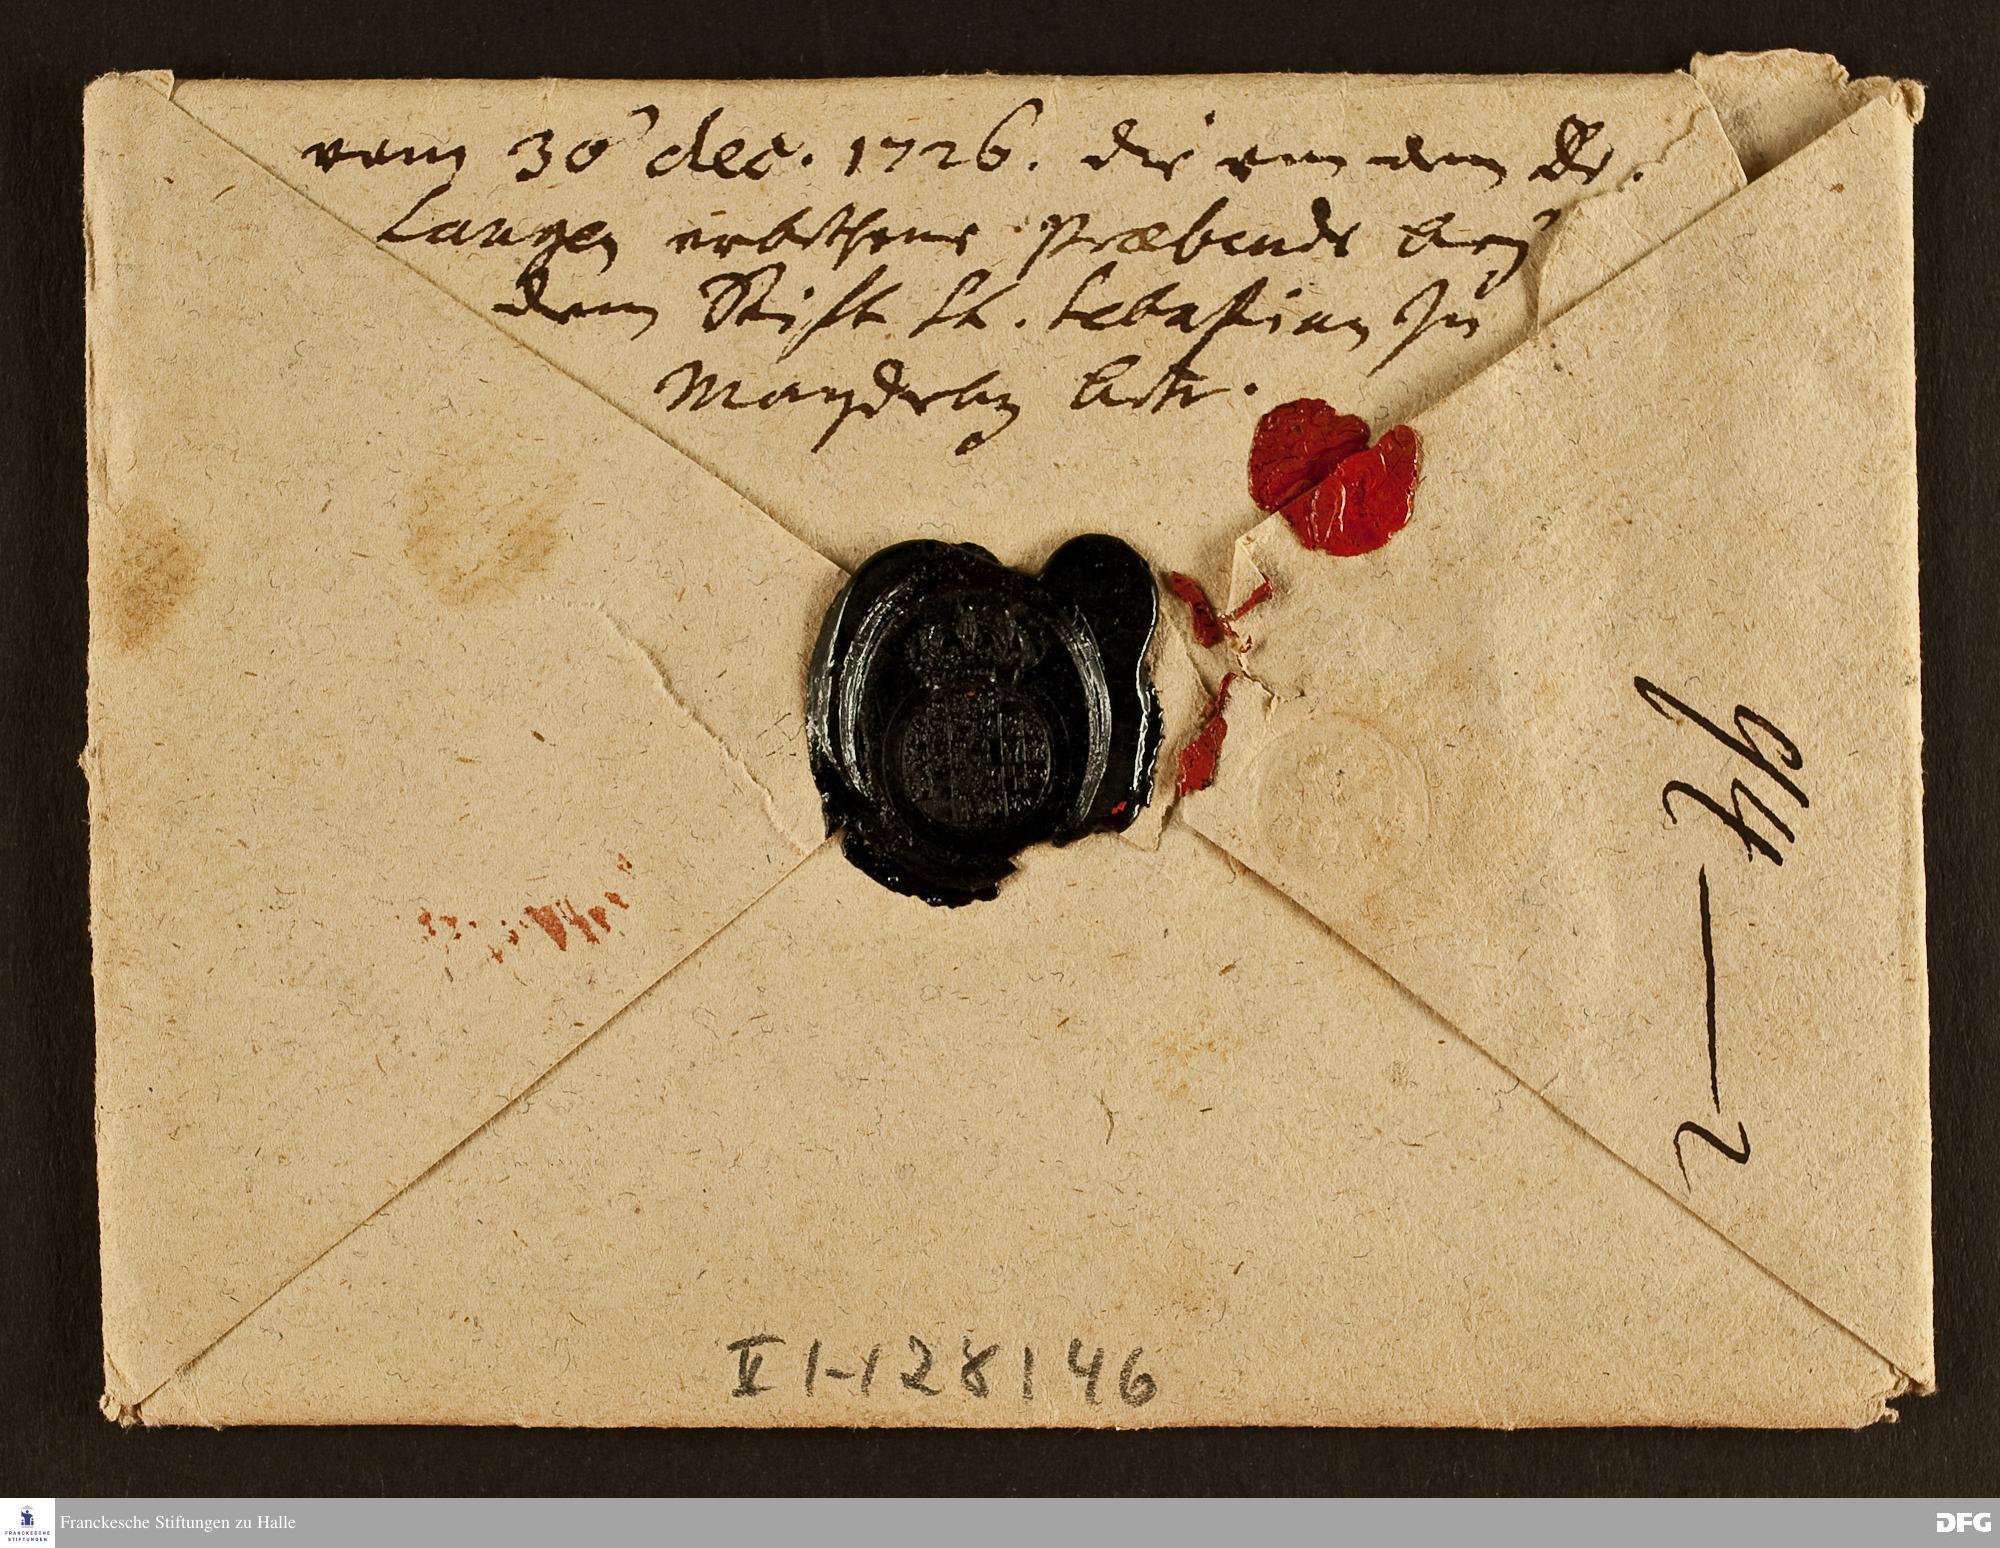 vom 30 dec. 1726. die von dem Dr.
Langen erbethene Præbende bey
dem Stifft St. Sebastian zu
Magdeburg betr.
V 1-128 | 46
FRANCKESCHE
STIFTUNGEN
Franckesche Stiftungen zu Halle
DFG